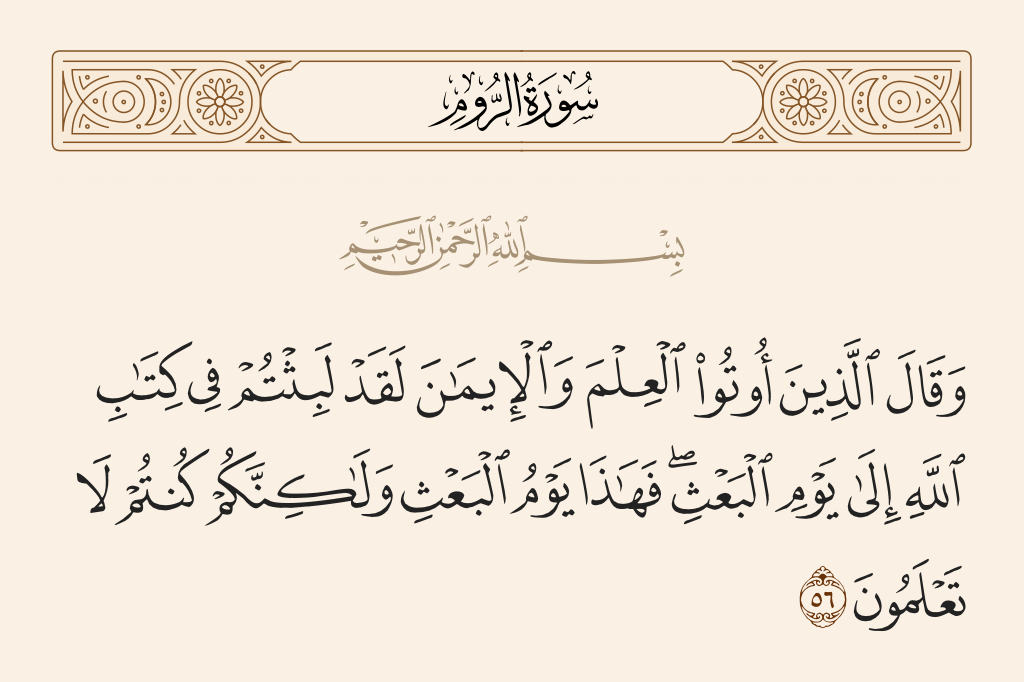 سُورَةُ الرُّومِ
بِسْمِ ٱللَّهِ ٱلرَّحْمَٰنِ ٱلرَّحِيمِ
وَقَالَ ٱلَّذِينَ أُوتُوا۟ ٱلْعِلْمَ وَٱلْإِيمَٰنَ لَقَدْ لَبِثْتُمْ فِى كِتَٰبِ
ٱللَّهِ إِلَىٰ يَوْمِ ٱلْبَعْثِ ۖ فَهَٰذَا يَوْمُ ٱلْبَعْثِ وَلَٰكِنَّكُمْ كُنتُمْ لَا
تَعْلَمُونَ ٥٦